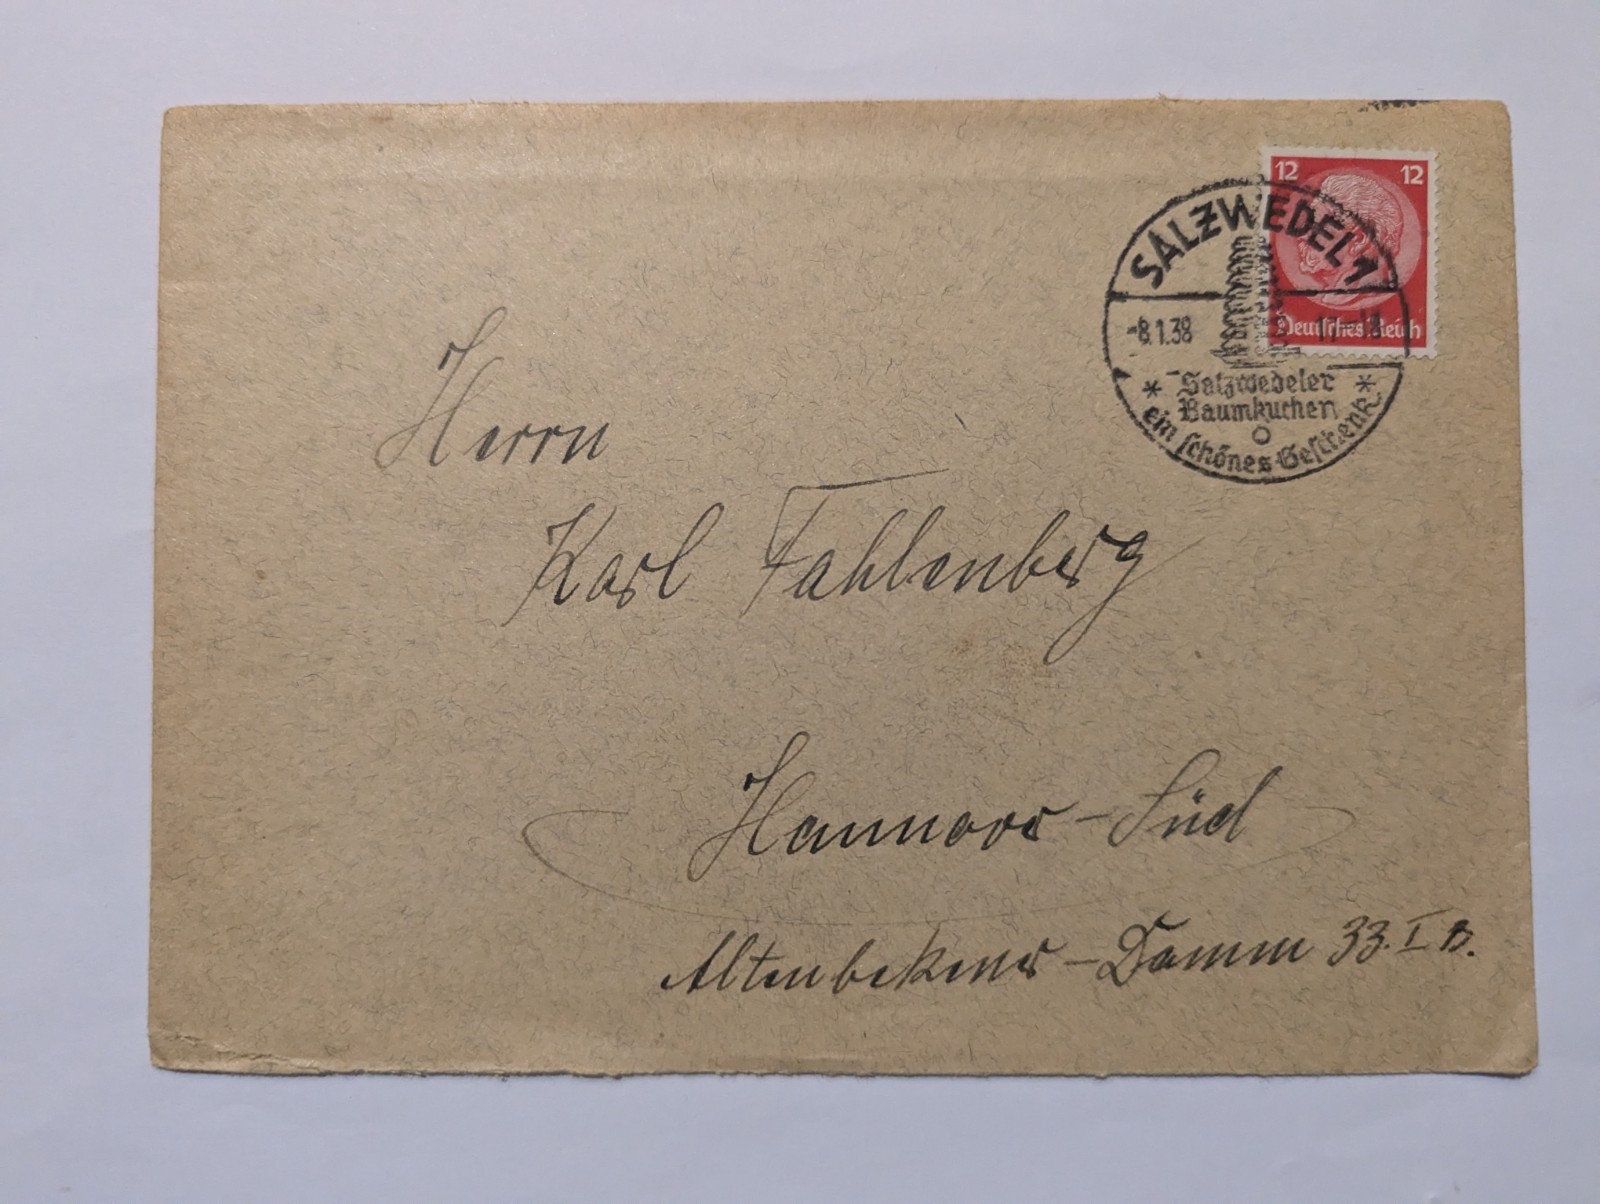 12 12
Deutsches Reich
SALZWEDEL 1
-8.1.38 17-18
* Salzwedeler *
Baumkuchen
ein schönes Geschenk
Herrn
Karl Fahlenberg
Hannover-Süd
Altenbekener-Damm 33. I B.